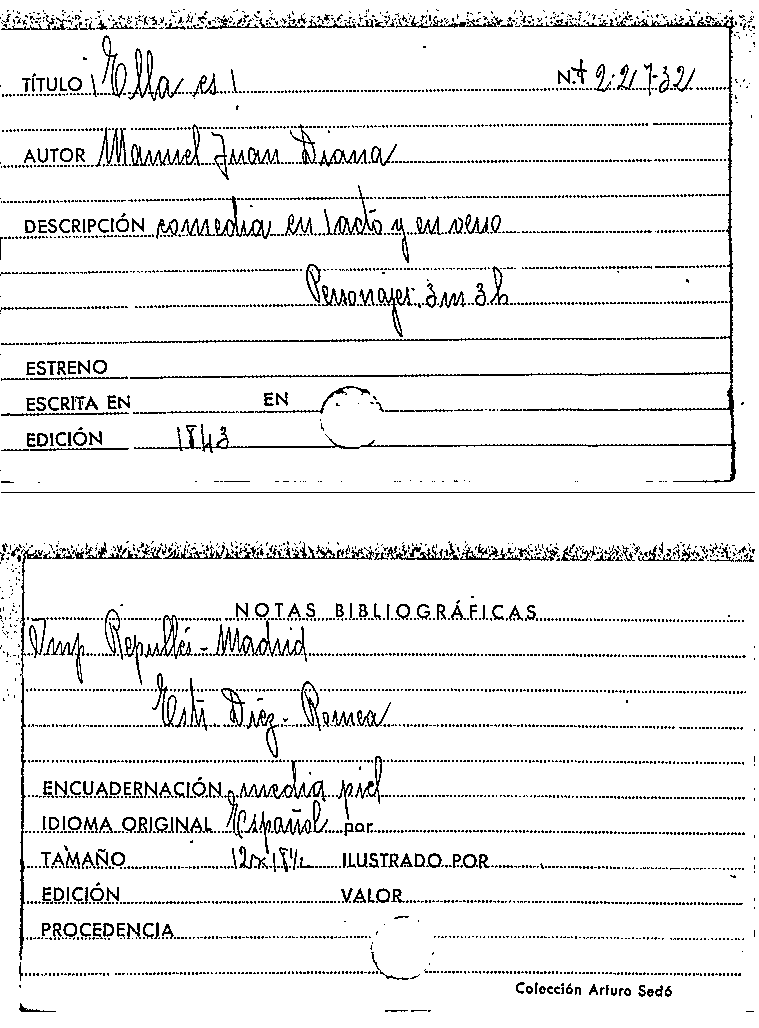 TÍTULO ¡Ella es! N.+ 2.217-32
AUTOR Manuel Juan Diana
DESCRIPCIÓN comedia en 1 acto y en verso
Personajes. 3m 3h
ESTRENO
ESCRITA EN EN
EDICIÓN 1843
NOTAS BIBLIOGRÁFICAS
Imp Repullés - Madrid
Estr Díez - Romea
ENCUADERNACIÓN media piel
IDIOMA ORIGINAL Español por
TAMAÑO 12x18½ ILUSTRADO POR
EDICIÓN VALOR
PROCEDENCIA
Colección Arturo Sedó